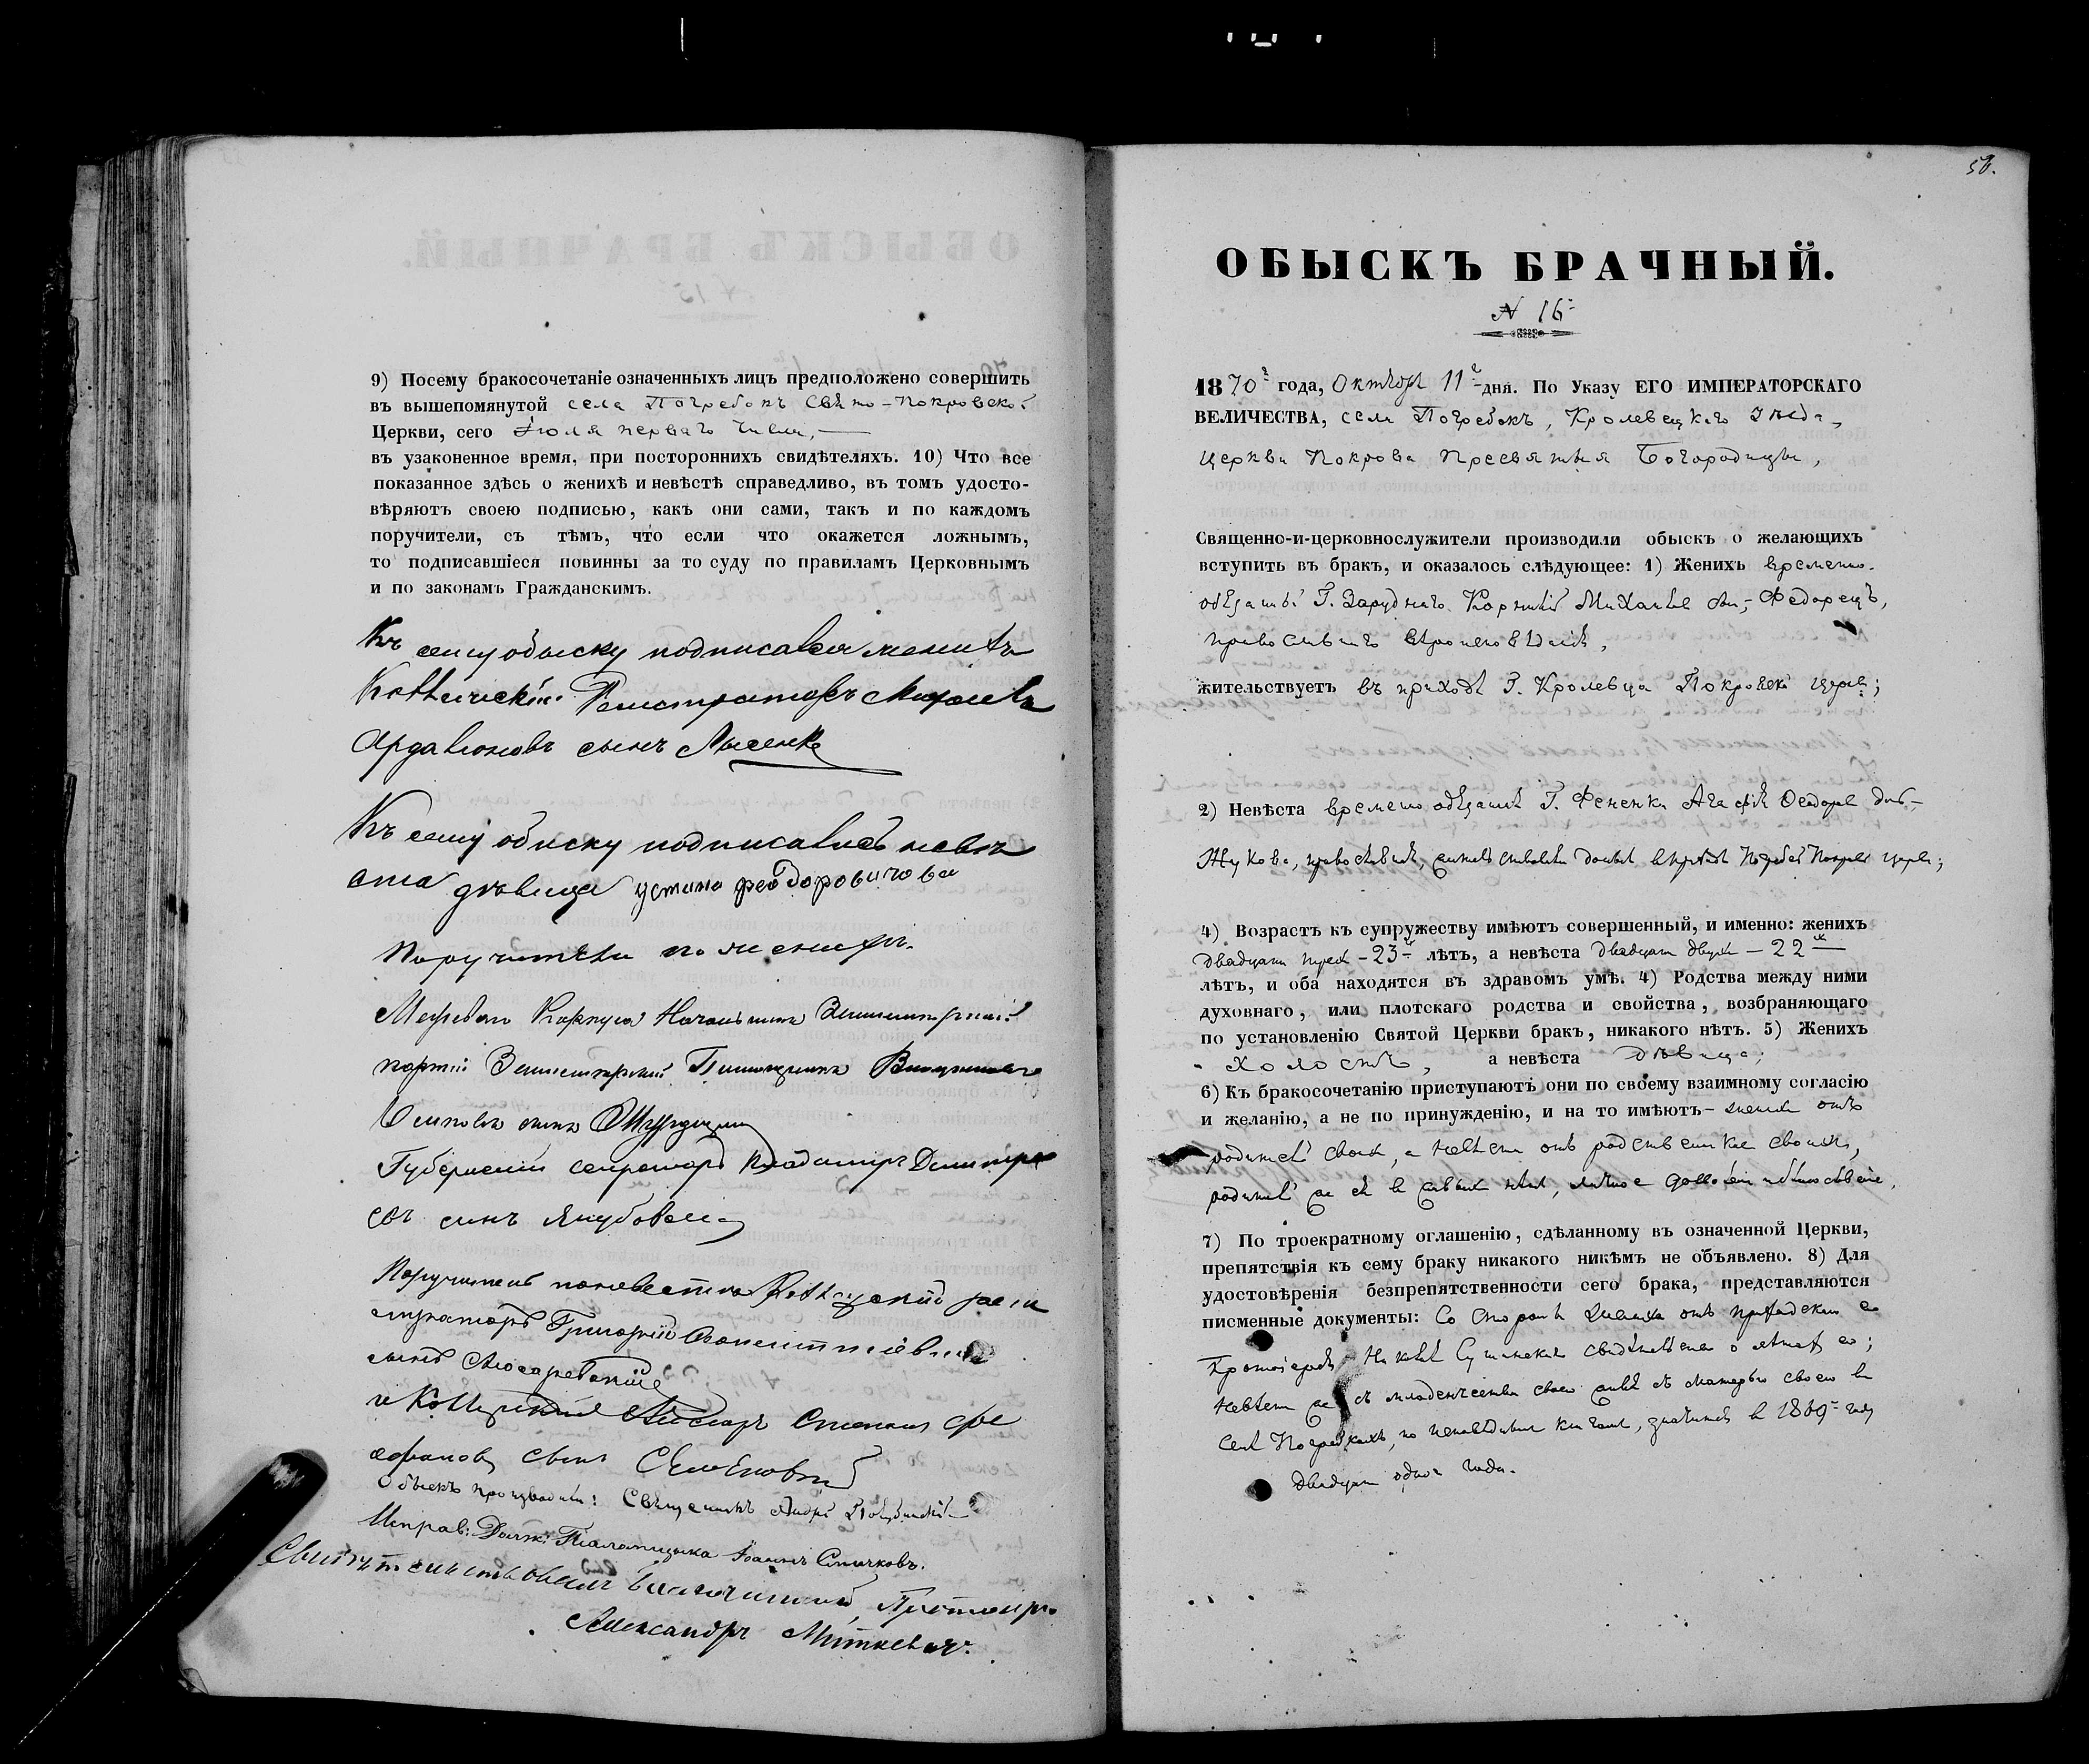 9) Посему бракосочетаніе означенныхъ лицъ предположено совершить
въ вышепомянутой села Погребокъ Свято-Покровской
Церкви, сего Іюля перваго числа,
въ узаконенное время, при постороннихъ свидѣтеляхъ. 10) Что все
показанное здѣсь о женихѣ и невѣстѣ справедливо, въ томъ удосто-
вѣряютъ своею подписью, какъ они сами, такъ и по каждомъ
поручители, съ тѣмъ, что если что окажется ложнымъ,
то подписавшіеся повинны за то суду по правиламъ Церковнымъ
и по законамъ Гражданскимъ.
Къ сему обыску подписался женихъ
Коллежскій Регистраторъ Михаилъ
Ардаліоновъ сынъ Лысенко
Къ сему обиску подписалась невѣ
ста дѣвица устина феодоровичова
Поручители по женихѣ
Межеваго Корпуса Начальникъ Землемѣрной
партіи Землемѣрный Помощникъ
Осиповъ сынъ
Губернскій секретарь Владимиръ Димитрі
евъ синъ Якубовскій
Поручители по невестѣ Коллежскій реги
страторъ Григорій
сынъ
и Коллежскій Степанъ Фе
офановъ сынъ
Обыскъ производили: Священникъ Андрей
Исправ: Долж: Паламщика Іоаннъ Спичковъ.
Свидѣтельствовалъ Благочинный, Протоіерей
Александръ Миткевичъ.
58.
ОБЫСКЪ БРАЧНЫЙ.
N 16
1870 года, Октября 11 дня. По Указу ЕГО ИМПЕРАТОРСКАГО
ВЕЛИЧЕСТВА, села Погребокъ, Кролевецкаго уѣзда,
церкви Покрова Пресвятыя Богородицы,
Священно-и-церковнослужители производили обыскъ о желающихъ
вступить въ бракъ, и оказалось слѣдующее: 1) Женихъ временно-
обязаный Г. Заруднаго Корнилій Михайловъ Федорецъ,
православнаго вѣроисповѣданія,
жительствуетъ въ приходѣ Г. Кролевца Покровской церкви;
2) Невѣста временно обязаная Г. Фененка Агафія Феодорова дочь
Жукова, православная, въ приходѣ Погребской Покров церкви;
4) Возрастъ къ супружеству имѣютъ совершенный, и именно: женихъ
двадцати трехъ - 23 лѣтъ, а невѣста двадцати двухъ - 22
лѣтъ, и оба находятся въ здравомъ умѣ. 4) Родства между ними
духовнаго, или плотскаго родства и свойства, возбраняющаго
по установленію Святой Церкви бракъ, никакого нѣтъ. 5) Женихъ
холостъ, а невѣста дѣвица;
6) Къ бракосочетанію приступаютъ они по своему взаимному согласію
и желанію, а не по принужденію, и на то имѣютъ - женихъ отъ
родителей своихъ, а невѣста отъ родственниковъ своихъ,
родителей же ея въ живыхъ нѣтъ, дозволеніе
7) По троекратному оглашенію, сдѣланному въ означенной Церкви,
препятствія къ сему браку никакого никѣмъ не объявлено. 8) Для
удостовѣренія безпрепятственности сего брака, представляются
писменные документы: Со стороны жениха отъ приходскаго его
Протоіерея свидѣтельство о лѣтахъ его;
невѣста же съ младенчества своего жила съ матерью своею въ
селѣ Погребкахъ, по исповѣднымъ книгамъ, значится въ 1869 году
двадцати одного года.